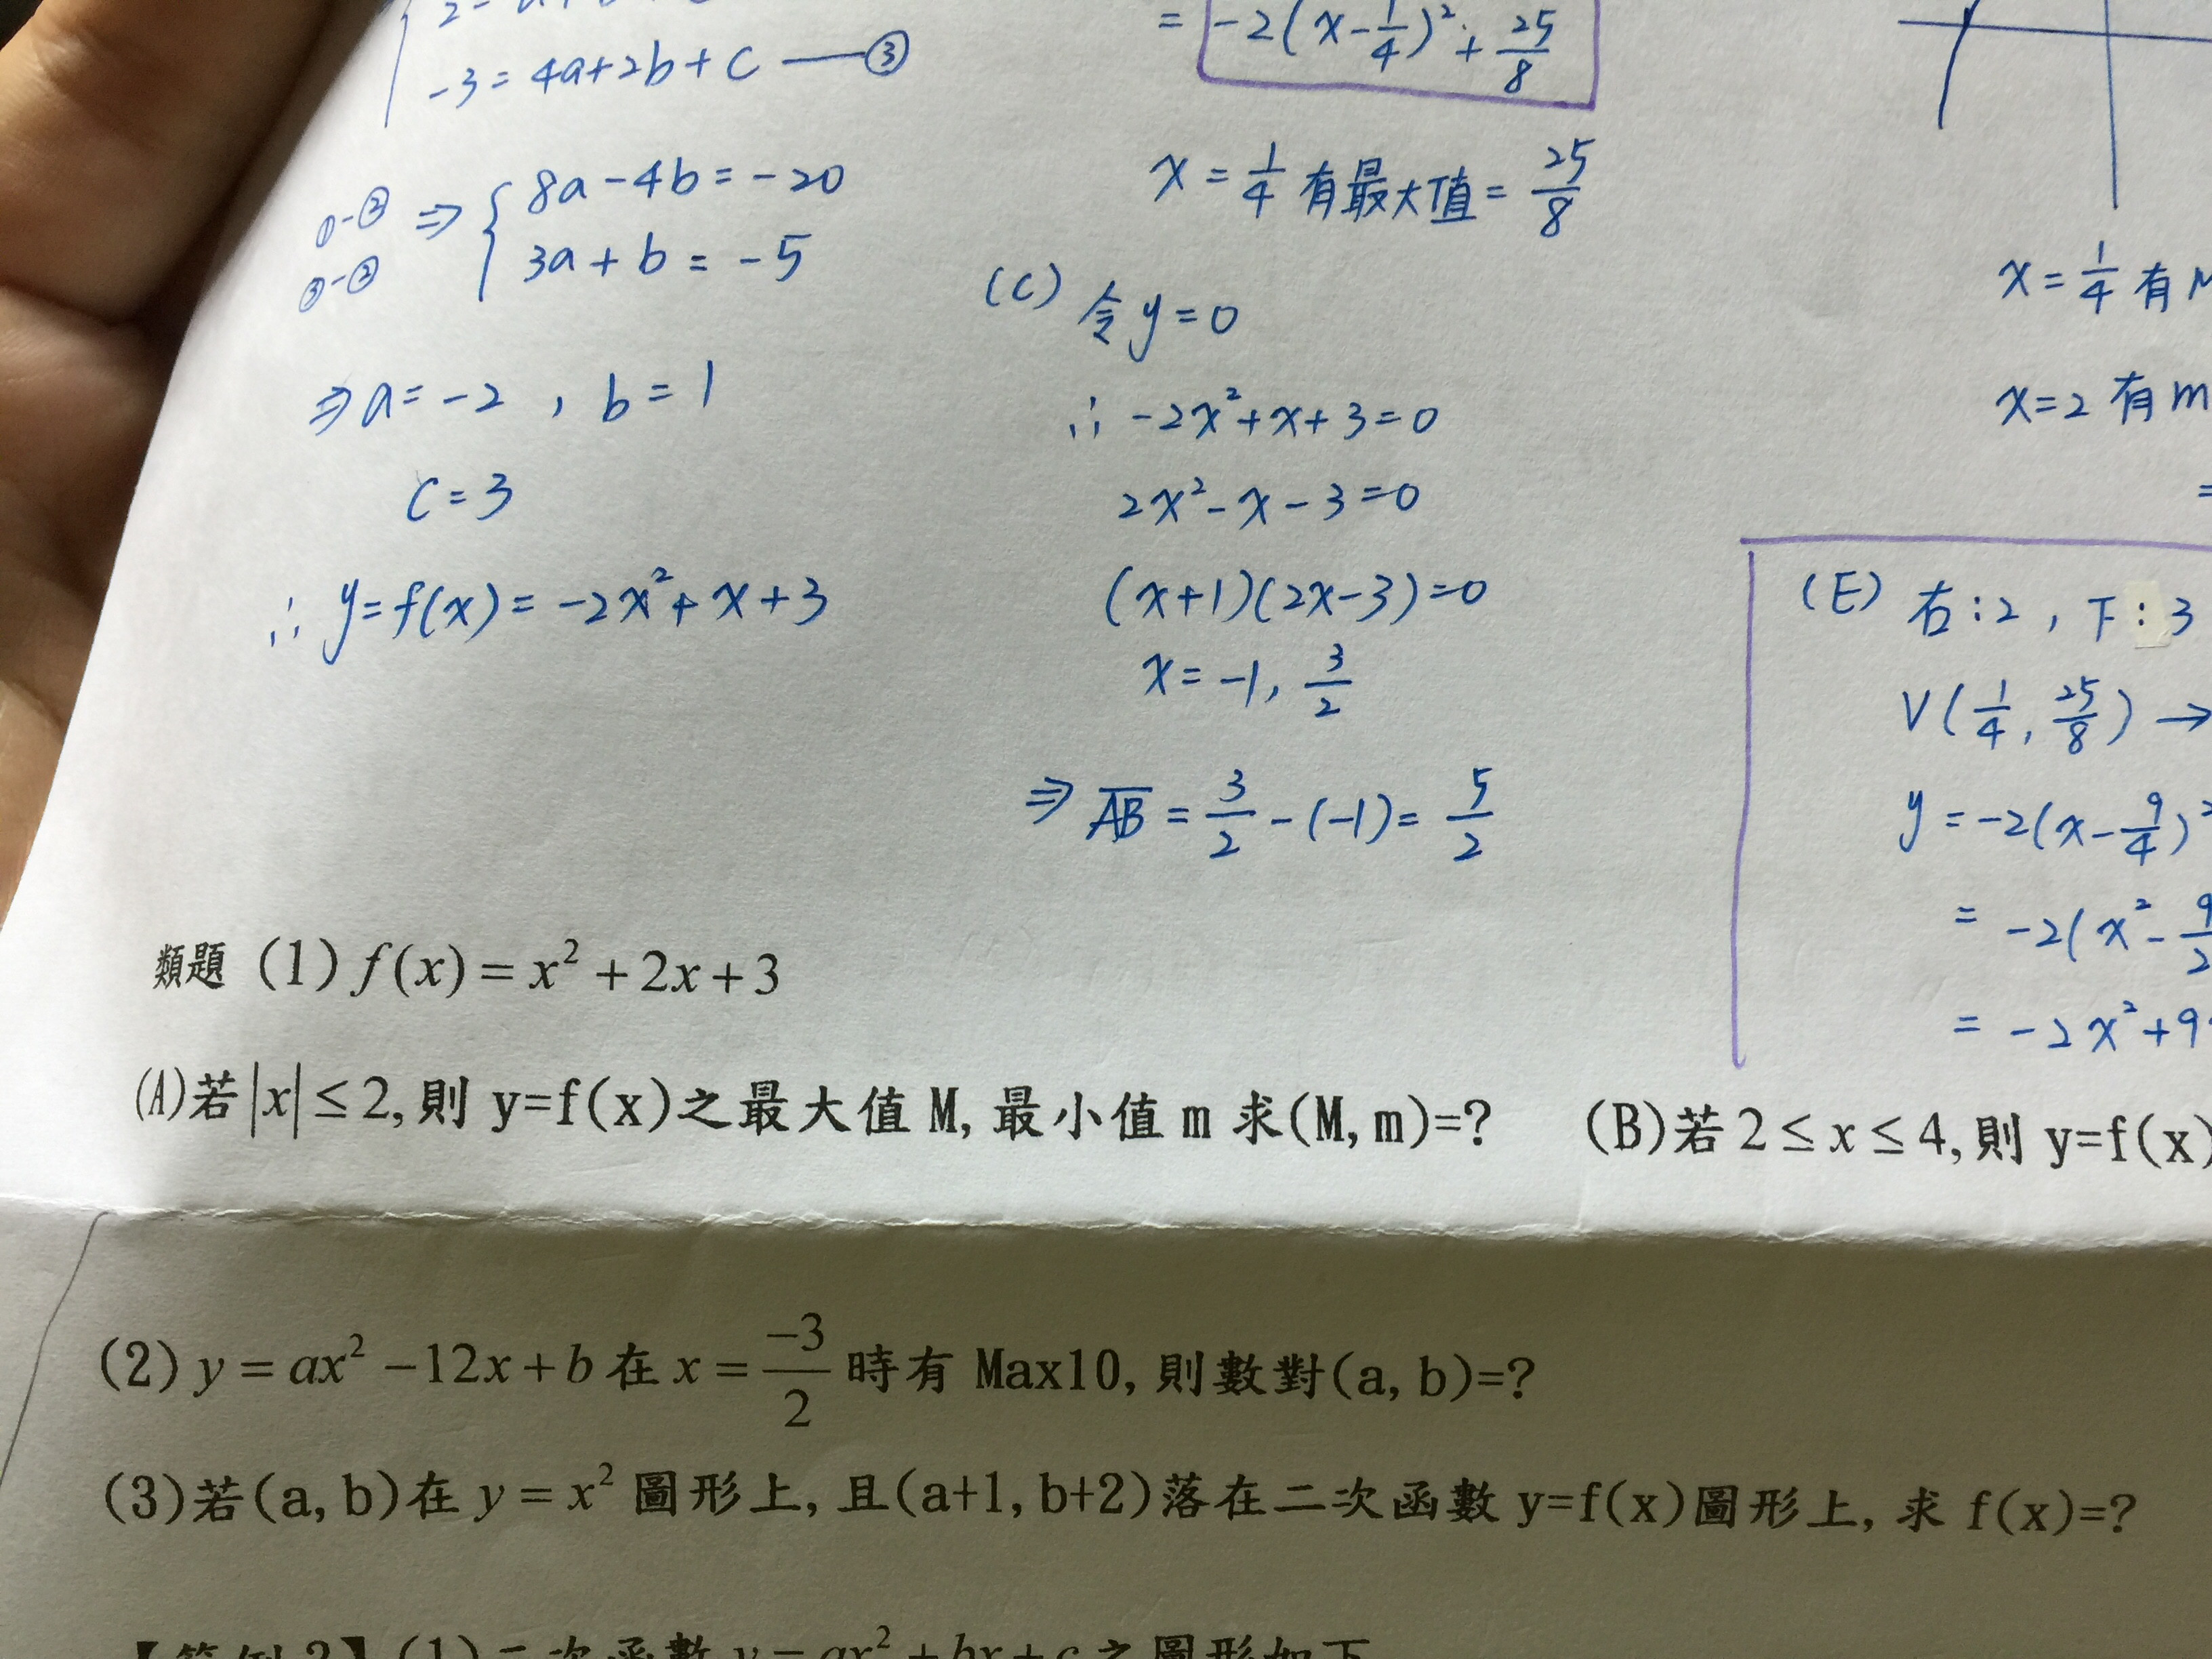 -3=4a+2b+c —③
①-② ⇒ { 8a-4b=-20
③-② 3a+b=-5
⇒ a=-2 , b=1
c=3
∴ y=f(x)=-2x²+x+3
= -2(x-1/4)²+25/8
x=1/4 有最大值=25/8
(C) 令y=0
∴ -2x²+x+3=0
2x²-x-3=0
(x+1)(2x-3)=0
x=-1, 3/2
⇒ AB=3/2-(-1)=5/2
x=1/4 有
x=2 有m
=
(E) 右:2 , 下:3
V(1/4, 25/8) →
y=-2(x-9/4)²
= -2(x²-9/2
= -2x²+9
類題 (1) f(x)=x²+2x+3
(A)若|x|≤2,則 y=f(x)之最大值 M,最小值 m 求(M,m)=?
(B)若 2≤x≤4,則 y=f(x)
(2) y=ax²-12x+b 在 x=-3/2 時有 Max10,則數對(a,b)=?
(3)若(a,b)在 y=x² 圖形上,且(a+1,b+2)落在二次函數 y=f(x)圖形上,求 f(x)=?
(1)二次函數 y=ax²+bx+c 之圖形如下